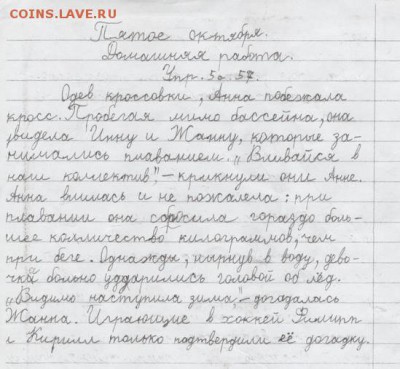 COINS.LAVE.RU
Пятое октября.
Домашняя работа.
Упр. 5а. 57.
Одев кроссовки, Анна побежала
кросс. Пробегая мимо бассейна, она
увидела Инну и Жанну, которые за-
нимались плаванием. „Вливайся в
наш коллектив"! – крикнули они Анне.
Анна влилась и не пожалела: при
плавании она сбросила гораздо боль-
шее колличество килограммов, чем
при беге. Однажды, нырнув в воду, дево-
чки больно уддарились головой об лёд.
„Видимо наступила зима", – догадалась
Жанна. Играющие в хоккей Филипп
и Кирилл только подтвердили её догадку.